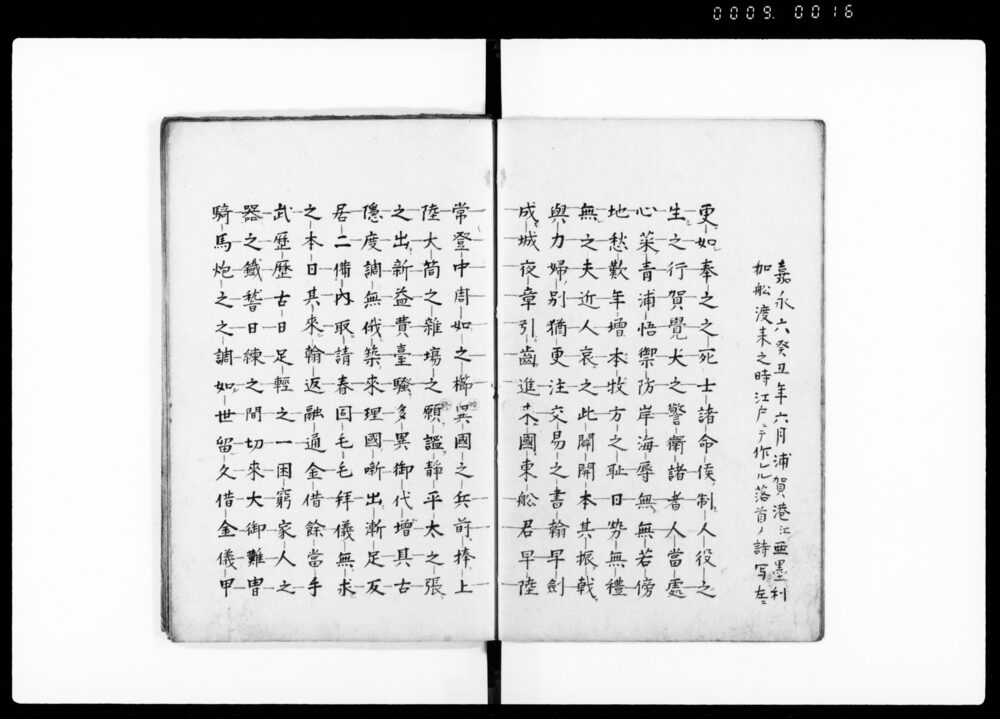 0009. 0016
嘉永六癸丑年六月浦賀港江亜墨利
加舩渡来之時江戸ニテ作レル落首ノ詩写左ニ
更如奉之之死士諸命侯制人役之
生之行賀覺犬之警衛諸者人當處
心菜青浦悟禦防岸海辱無無若傍
地愁歎年増本牧方之耻日勢無禮
無之夫近人哀之此開開本其振戟
與力婦別猶更注交易之書翰早劍
成城夜章引齒進来國東舩君早陸
常登中周如之櫛異國之兵前捧上
陸大筒之雑塲之願謐静平太之張
之出新益費臺騒多異御代増具古
隠度調無俄築來理國噺出漸足反
居二備内取請春回毛毛拜儀無求
之本日其來翰返融通金借餘當手
武歴歴古日足輕之一困窮家人之
器之鐵嗜日練之間切來大御難冑
騎馬炮之之調如世留久借金儀甲